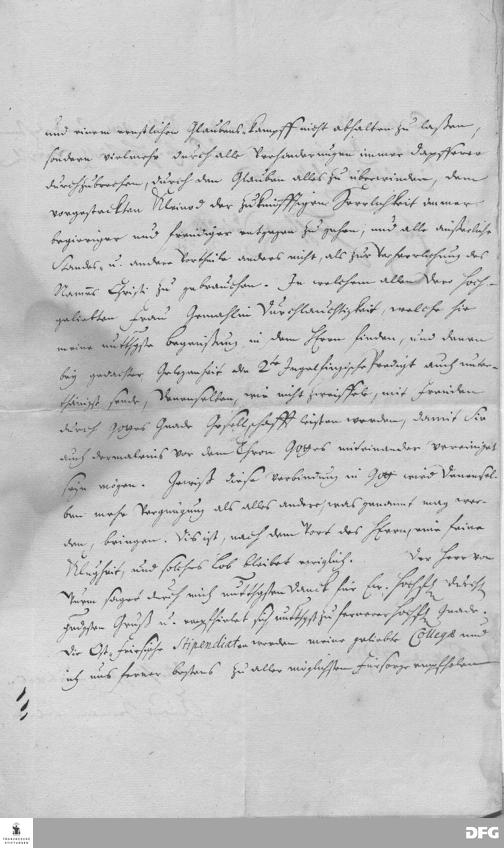 und einem ernstlichen Glaubens-Kampff nicht abhalten zu laßen,
sondern vielmehr durch alle Verhinderungen immer dapfferer
durchzubrechen, durch den Glauben alles zu überwinden, dem
vorgesteckten Kleinod der zukünfftigen Herrlichkeit immer
begieriger und freudiger entgegen zu gehen; und alle äußerliche
Standes- u. andere Vortheile anders nicht, als zur Verherrlichung des
Namens Christi zu gebrauchen. In welchem allen Dero Hoch-
geliebten Frau Gemahlin Durchlauchtigkeit, welche hie
meine unterthgste begrüßung in dem Herrn finden, und denen
bey gedachter Gelegenheit die 2te Predigt auch unter-
thänigst sende, Denenselben, wie nicht zweiffele, mit Freuden
durch Gottes Gnade Gesellschafft leisten werden, damit Sie
auch dermaleins vor dem Thron Gottes miteinander vereiniget
seyn mögen. Gewiß diese verbindung in Gott wird Denensel-
ben mehr Vergnügung als alles andere, was genannt mag wer-
den, bringen. Dis ist, nach dem Wort des Herrn, eine feine
Klugheit, und solches Lob bleibet ewiglich. Der Herr von
Wurm saget durch mich unterthgsten Danck für Ew. Hochfl. Durchl.
gndsten Gruß u. empfiehlet sich unterthgst zu fernerer Hochfl. Gnade.
Die Ost-Frießsche Stipendiaten werden meine geliebte Collegae und
ich uns ferner bestens zu aller möglichsten Fürsorge empfohlen
FRANCKESCHE
STIFTUNGEN
DFG